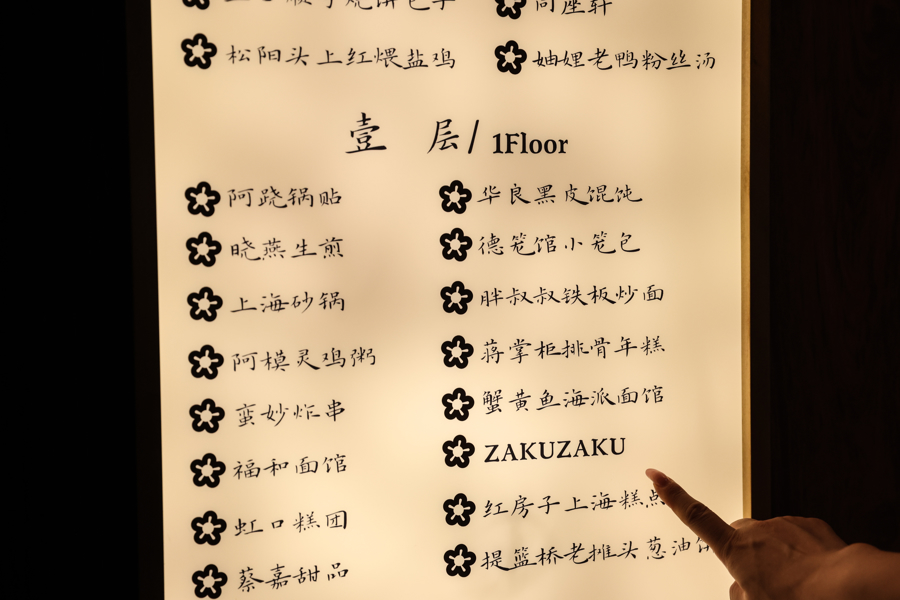 松阳头上红煨盐鸡
妯娌老鸭粉丝汤
壹 层/ 1Floor
阿跷锅贴
晓燕生煎
上海砂锅
阿模灵鸡粥
蛮妙炸串
福和面馆
虹口糕团
蔡嘉甜品
华良黑皮馄饨
德笼馆小笼包
胖叔叔铁板炒面
蒋掌柜排骨年糕
蟹黄鱼海派面馆
ZAKUZAKU
红房子上海糕点
提篮桥老摊头葱油饼